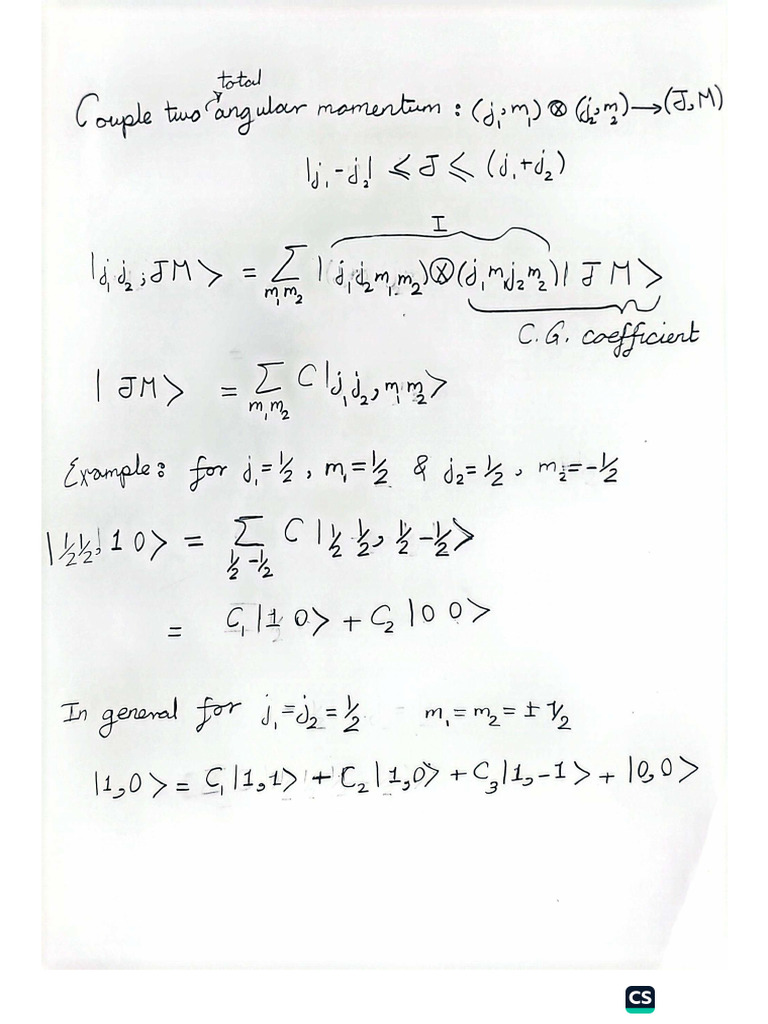 total
Couple two angular momentum : (j₁, m₁) ⊗ (j₂, m₂) → (J, M)
|j₁ - j₂| ⩽ J ⩽ (j₁ + j₂)
I
|j₁ j₂ ; J M > = ∑ | (j₁ j₂ m₁, m₂) ⊗ (j₁ m₁ j₂ m₂) | J M >
m₁ m₂
C.G. coefficient
| J M > = ∑ C | j₁ j₂, m₁ m₂ >
m₁ m₂
Example: for j₁ = 1/2 , m₁ = 1/2 & j₂ = 1/2 , m₂ = -1/2
| 1/2 1/2, 1 0 > = ∑ C | 1/2 1/2, 1/2 -1/2 >
1/2 -1/2
= C₁ | 1 0 > + C₂ | 0 0 >
In general for j₁ = j₂ = 1/2 m₁ = m₂ = ± 1/2
| 1, 0 > = C₁ | 1, 1 > + C₂ | 1, 0 > + C₃ | 1, -1 > + | 0, 0 >
CS